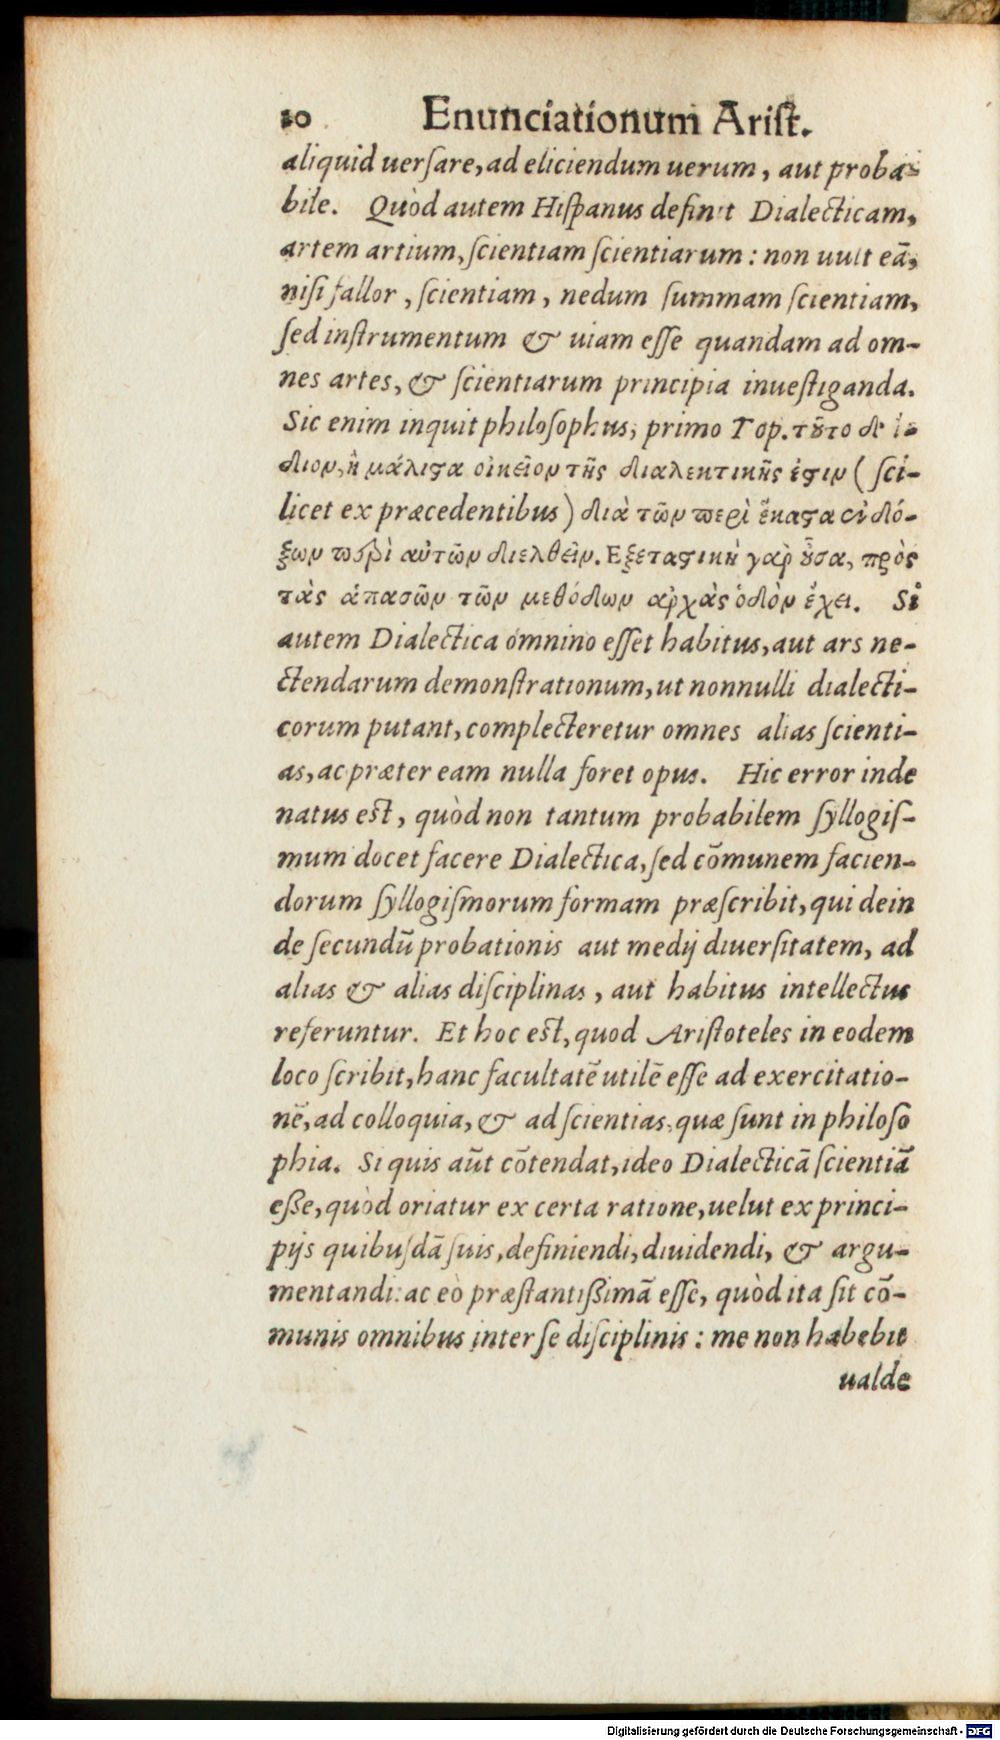 10 Enunciationum Arist.
aliquid uersare, ad eliciendum uerum, aut proba-
bile. Quòd autem Hispanus definit Dialecticam,
artem artium, scientiam scientiarum: non uult eā,
nisi fallor, scientiam, nedum summam scientiam,
sed instrumentum & uiam esse quandam ad om-
nes artes, & scientiarum principia inuestiganda.
Sic enim inquit philosophus, primo Top. τȣ͂το δ' ἴ-
διον, ἢ μάλιϛα οἰκεῖον τῆς διαλεκτικῆς ἐϛιν (sci-
licet ex præcedentibus) διὰ τῶν περὶ ἕκαϛα ἐνδό-
ξων περὶ αὐτῶν διελθεῖν. Εξεταϛικὴ γὰρ ȣ̓͂σα, πρὸς
τὰς ἁπασῶν τῶν μεθόδων ἀρχὰς ὁδὸν ἔχει. Si
autem Dialectica omnino esset habitus, aut ars ne-
ctendarum demonstrationum, ut nonnulli dialecti-
corum putant, complecteretur omnes alias scienti-
as, ac præter eam nulla foret opus. Hic error inde
natus est, quòd non tantum probabilem syllogis-
mum docet facere Dialectica, sed cōmunem facien-
dorum syllogismorum formam præscribit, qui dein
de secundū probationis aut medij diuersitatem, ad
alias & alias disciplinas, aut habitus intellectus
referuntur. Et hoc est, quod Aristoteles in eodem
loco scribit, hanc facultatē utilē esse ad exercitatio-
nē, ad colloquia, & ad scientias, quæ sunt in philoso
phia. Si quis aūt cōtendat, ideo Dialecticā scientiā
eße, quòd oriatur ex certa ratione, uelut ex princi-
pijs quibusdā suis, definiendi, diuidendi, & argu-
mentandi: ac eò præstantißimā esse, quòd ita sit cō-
munis omnibus inter se disciplinis: me non habebit
ualde
Digitalisierung gefördert durch die Deutsche Forschungsgemeinschaft - DFG